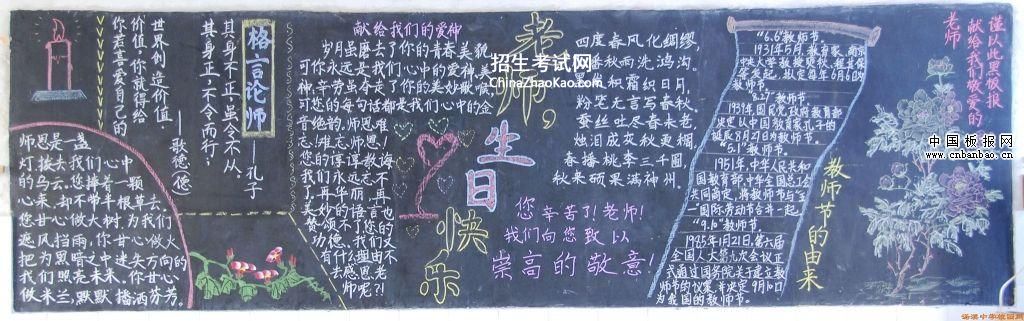 你若喜爱自己的
价值，你就得给
世界创造价值。
——歌德(德)
师恩是一盏
灯，拨去我们心中
的乌云。您捧着一颗
心来，却不带半根草去。
您甘心做大树，为我们
遮风挡雨，你甘心做火
把为黑暗之中迷失方向的
我们照亮未来。你甘心
做米兰，默默播洒芬芳。
格言论师
其身正，不令而行；
其身不正，虽令不从。
——孔子
献给我们的爱神
岁月虽磨去了你的青春美貌，
可你永远是我们心中的爱神，美
神。辛劳虽夺走了你的美妙歌喉，
可您的每句话都是我们心中的金
音绝韵。师恩难
忘！难忘师恩！
您的谆谆教诲
我们永远忘不
了。再华丽、再
美妙的语言也
赞颂不了您的
功德。我们又
有什么理由不
去感恩老
师呢？！
老师，
生日
快乐
四度春风化绸缪，
几番秋雨洗鸿沟。
黑发积霜织日月，
粉笔无言写春秋。
蚕丝吐尽春未老，
烛泪成灰秋更稠。
春播桃李三千圃，
秋来硕果满神州。
您辛苦了！老师！
我们向您致以
崇高的敬意！
"6.6"教师节。
1931年5月，教育家、南京
中央大学教授
等发起，拟定每年6月6日
教师节。
"8.27"教师节。
1939年国民党政府教育部
决定以中国教育家孔子的
诞辰8月27日为教师节。
"5.1"教师节。
1951年，中华人民共和
国教育部、中华全国总工会
共同商定，将教师节与"五
一"国际劳动节合并一起。
"9.10"教师节。
1985年1月21日，第六届
全国人大第九次会议正
式通过国务院关于建立教
师节的议案，并决定9月10日
为我国的教师节。
教师节的由来
谨以此黑板报
献给我们敬爱的
老师
招生考试网
ChinaZhaoKao.com
中国板报网
www.cnbanbao.cn